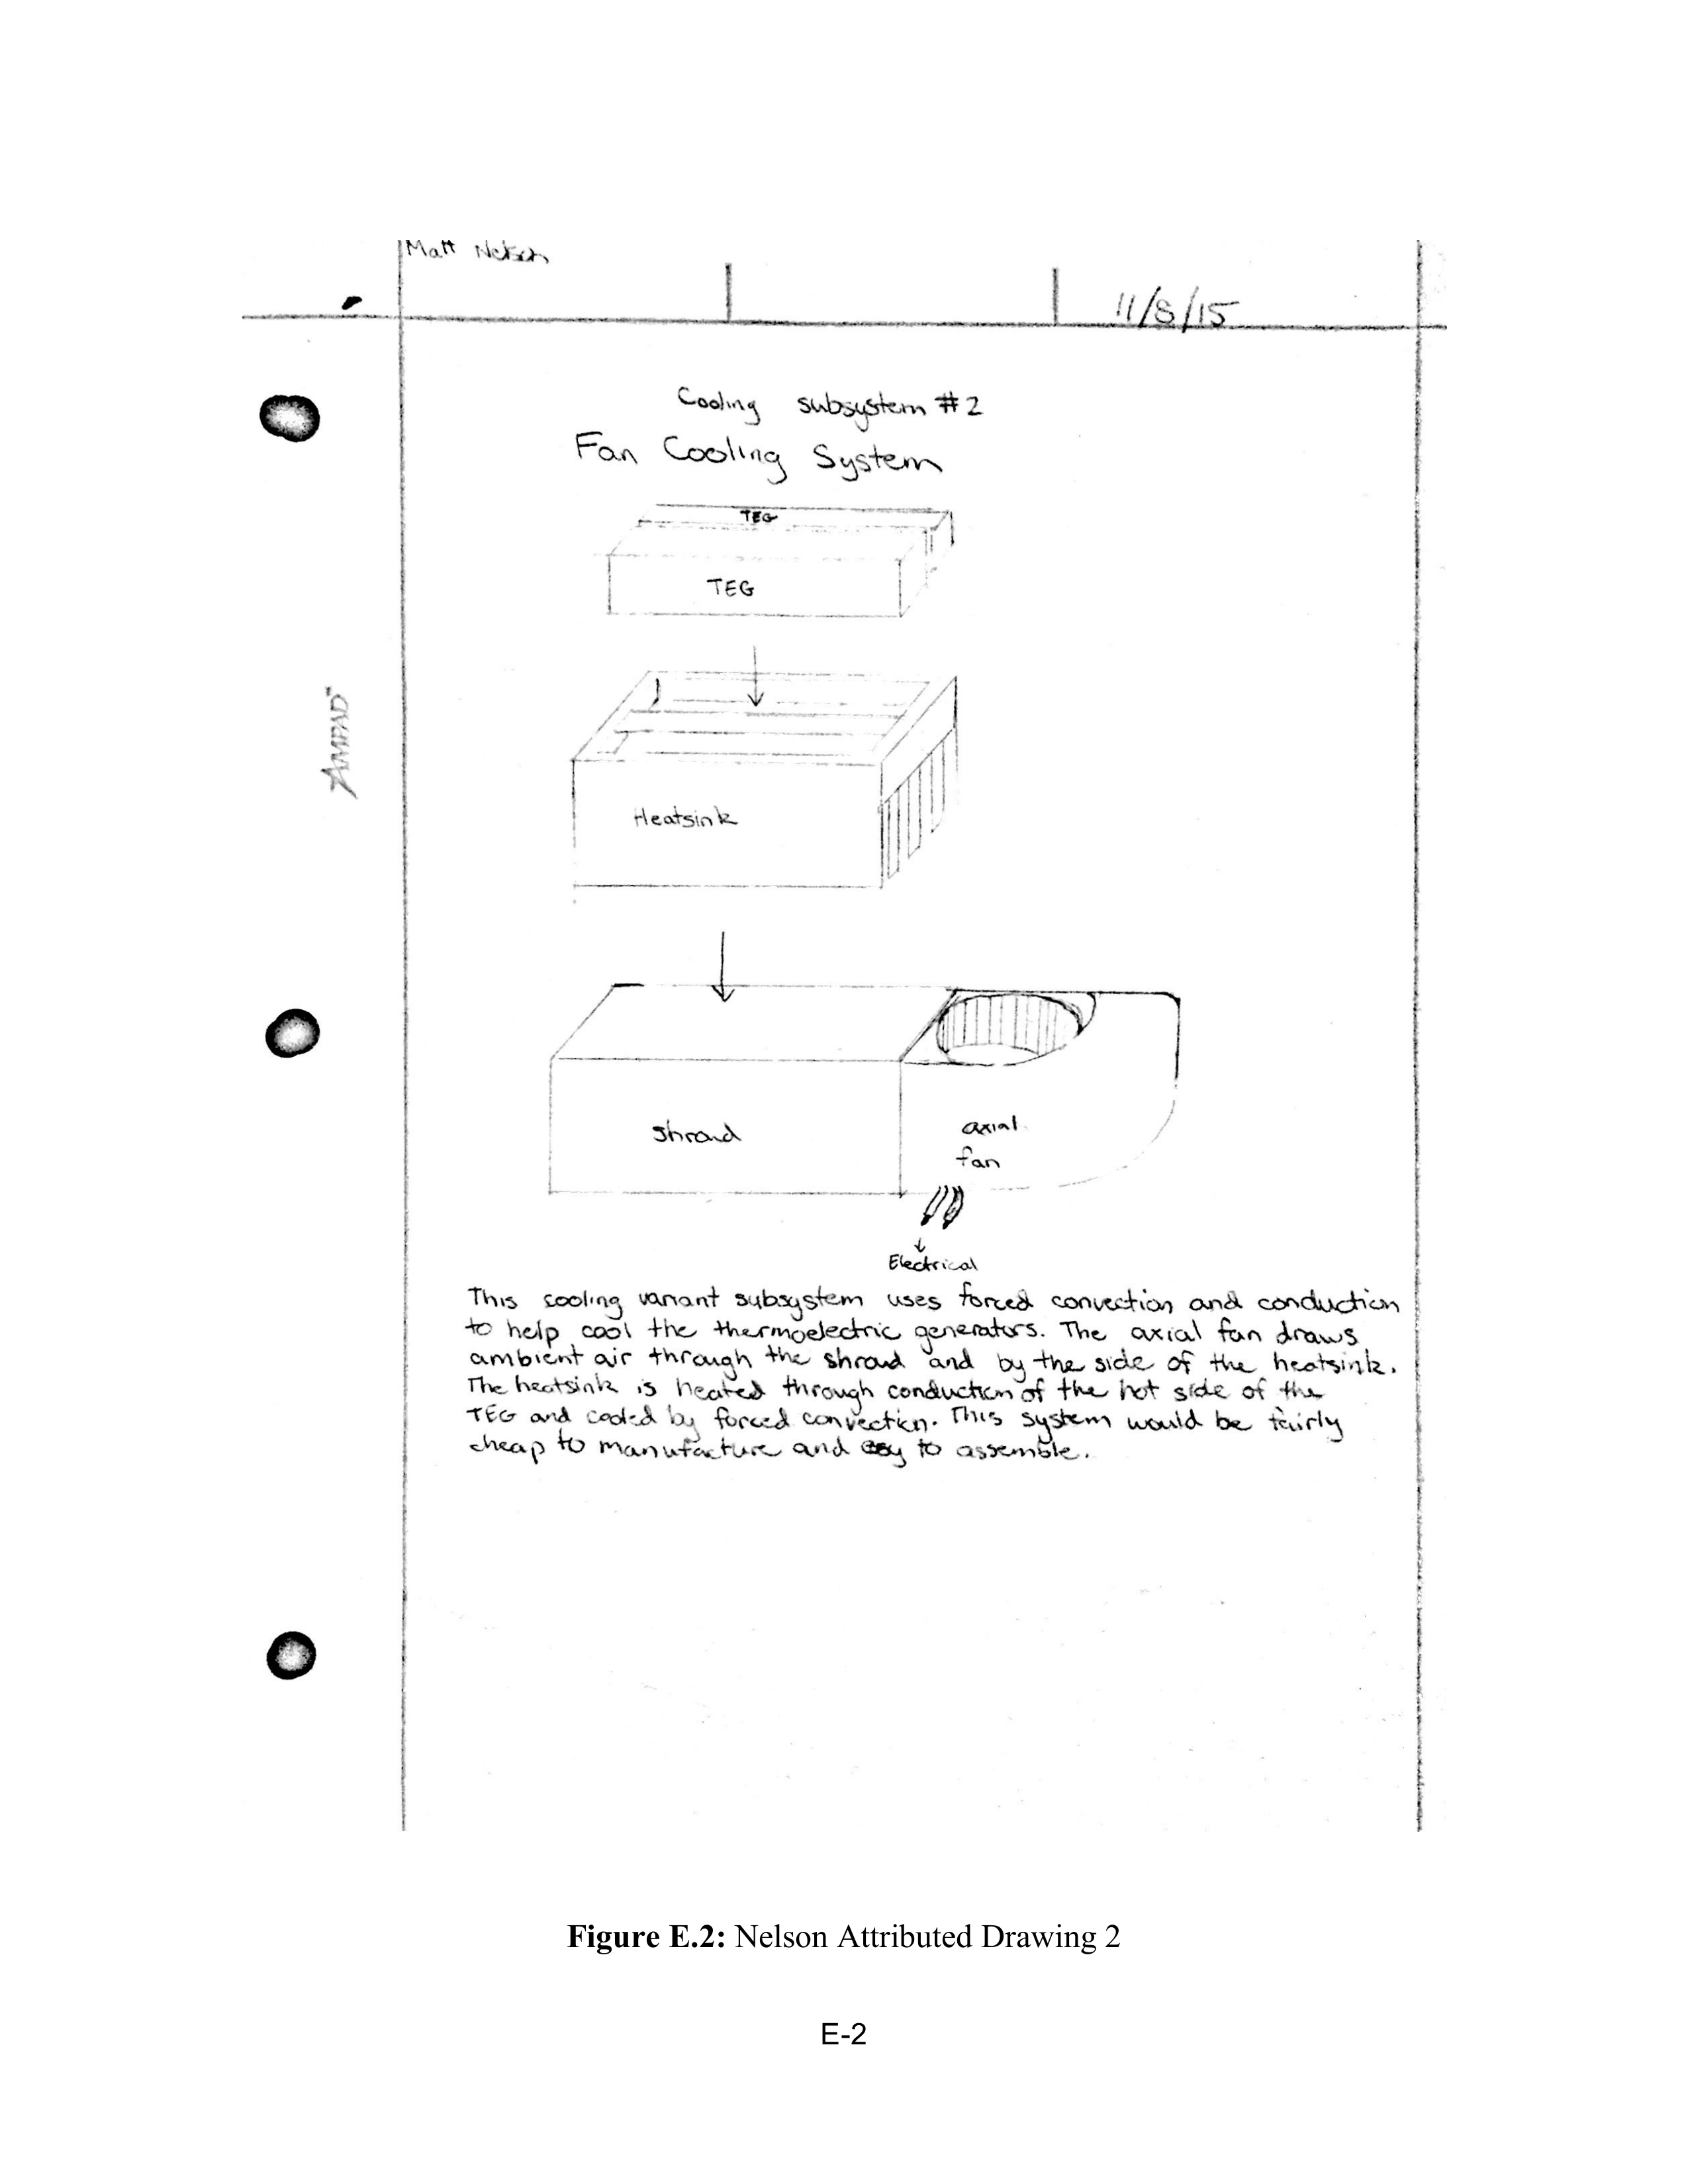 Matt Nelson
11/8/15
Cooling subsystem #2
Fan Cooling System
TEG
TEG
AMPAD™
Heatsink
shroud
axial
fan
Electrical
This cooling variant subsystem uses forced convection and conduction
to help cool the thermoelectric generators. The axial fan draws
ambient air through the shroud and by the side of the heatsink.
The heatsink is heated through conduction of the hot side of the
TEG and cooled by forced convection. This system would be fairly
cheap to manufacture and easy to assemble.
Figure E.2: Nelson Attributed Drawing 2
E-2